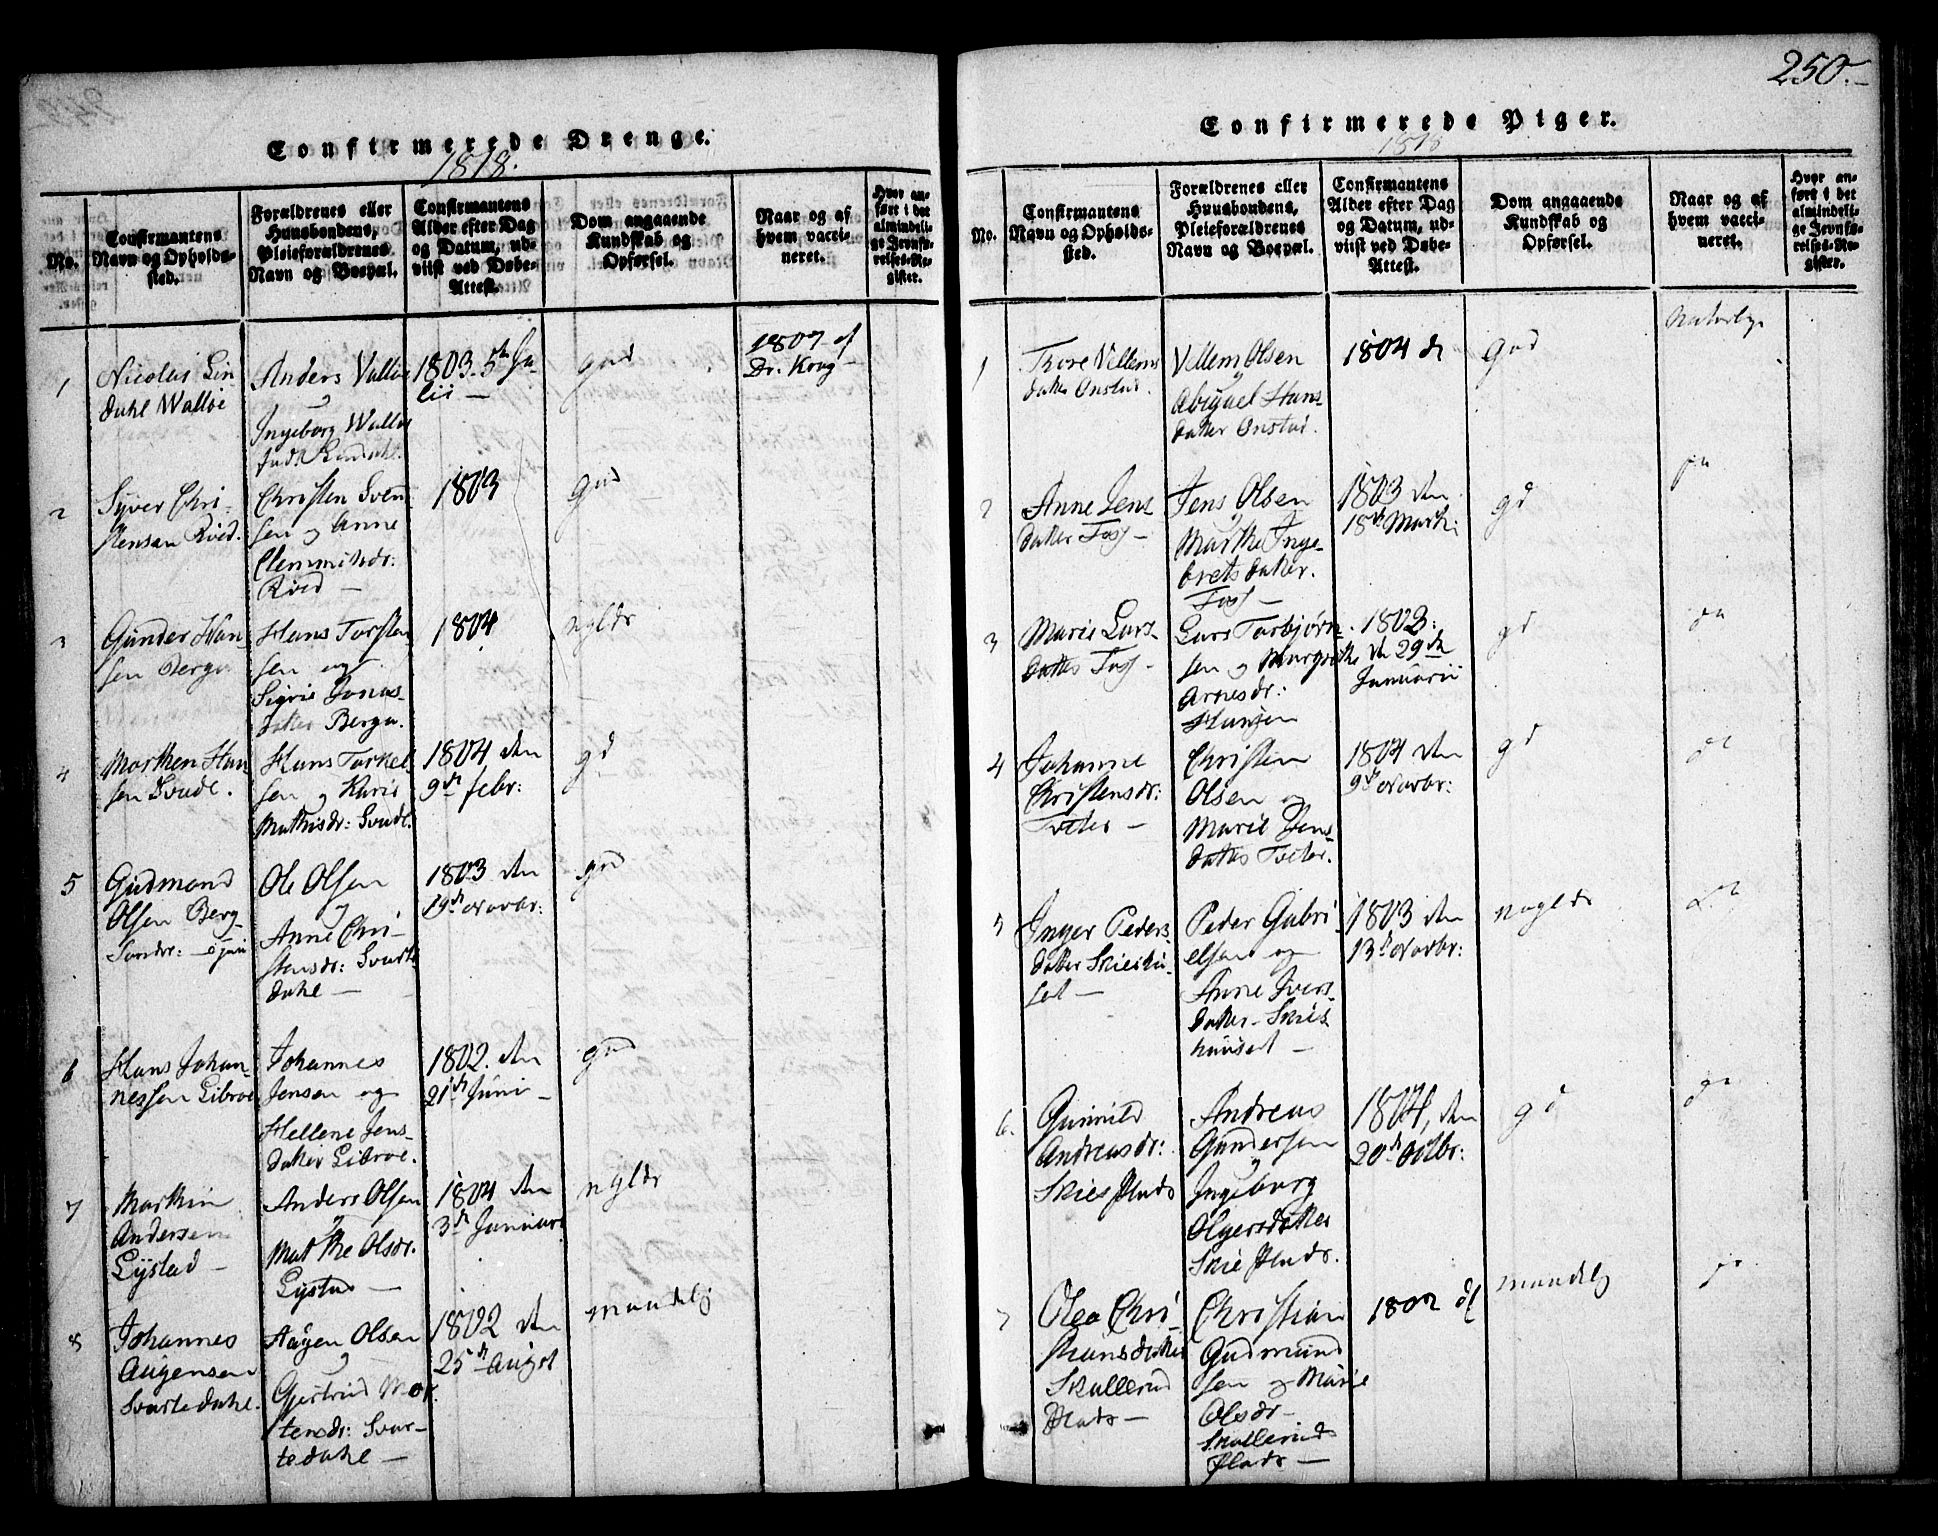 Confirmerede Drenge.
1818.
No.
Confirmantens
Navn og Opholds-
sted.
Forældrenes eller
Huusbondens,
Pleieforældrenes
Navn og Boepæl.
Confirmantens
Alder efter Dag
og Datum, ud-
viist ved Døbe-
Attest.
Dom angaaende
Kundskab og
Opførsel.
Naar og af
hvem vacci-
neret.
Hvor an-
ført i det
almindeli-
ge Jevnfø-
relses-Re-
gister.
1
Nicolai Lin
dahl Walløe
Anders Walløe
Ingeborg Walløe
1803. 5te Ju-
lii —
god
1807 af
Dr. Krog —
2
Syver Chri-
stensen Roed.
Christen Sven
sen og Anne
Clemmitsdr:
Roed —
1803
god
3
Gunder Han-
sen Berger
Hans Torsten
sen og
Sigrie Jonas-
datter Berger.
1804
4
Morthen Han-
sen
Hans Torkel-
sen og Karie
Mathisdr:
1804 den
9de febr:
gd
5
Gudmand
Olsen Berg
Ole Olsen
og
Anne Chri-
stensdr: Svarte
dahl —
1803 den
19de Novbr:
god
6
Hans Johan-
nessen Libroe
Johannes
Jensen og
Hellene Jens-
datter Libroe.
1802. den
21de Juni —
god
7
Morthin
Andersen
Lystad —
Anders Olsen
og
Marthe Olsdr.
Lystad —
1804 den
3de Januari
8
Johannes
Augensen
Svartedahl.
Aagen Olsen
og
Gjertrud Mor
tensdr: Svar-
tedahl —
1802 den
25de August
maadelig
250.—
Confirmerede Piger.
1818
No.
Confirmantens
Navn og Opholds-
sted.
Forældrenes eller
Huusbondens,
Pleieforældrenes
Navn og Boepæl.
Confirmantens
Alder efter Dag
og Datum, ud-
viist ved Døbe-
Attest.
Dom angaaende
Kundskab og
Opførsel.
Naar og af
hvem vacci-
neret.
Hvor an-
ført i det
almindeli-
ge Jevnfø-
relses-Re-
gister.
1
Tore Villems
datter Onstad.
Villem Olsen
og
Abigael Hans-
datter Onstad.
1804
god
2
Anne Jens
datter Foss —
Jens Olsen
og
Marthe Inge-
bretsdatter.
Foss —
1803 den
18de Marti
gd
ja
3
Marie Lars-
datter Foss —
Lars Torbjørn-
sen og Margrethe
Arnesdr:
Haugen
1803:
d 29de
Januarii
gd
ja
4
Johanne
Christensdr:
Tveter —
Christen
Olsen og
Marie Jens
datter Tveter.
1804 den
9de Novbr:
gd
5
Inger Peders-
datter Skiesku-
set —
Peder Gabri
elsen og
Anne Ivers-
datter
1803 den
13de Novbr:
6.
Gunnild
Andreasdr:
Skie Plads
Andreas
Gundersen
og
Ingeborg
Olgersdatter
Skie Plads.
1804, den
20de Octbr:
gd
7
Olea Chri-
stiansdatter
Skullerud
Plads —
Christian
Gudmund
sen og Marie
Olsdr —
Skullerud
Plads —
1802
maadelig